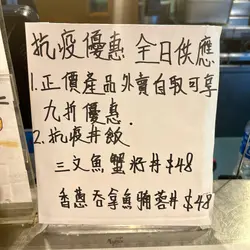 抗疫優惠 全日供應
1.正價產品外賣自取可享
九折優惠.
2.抗疫丼飯
三文魚蟹籽丼$48
香蔥吞拿魚腩蓉丼$48